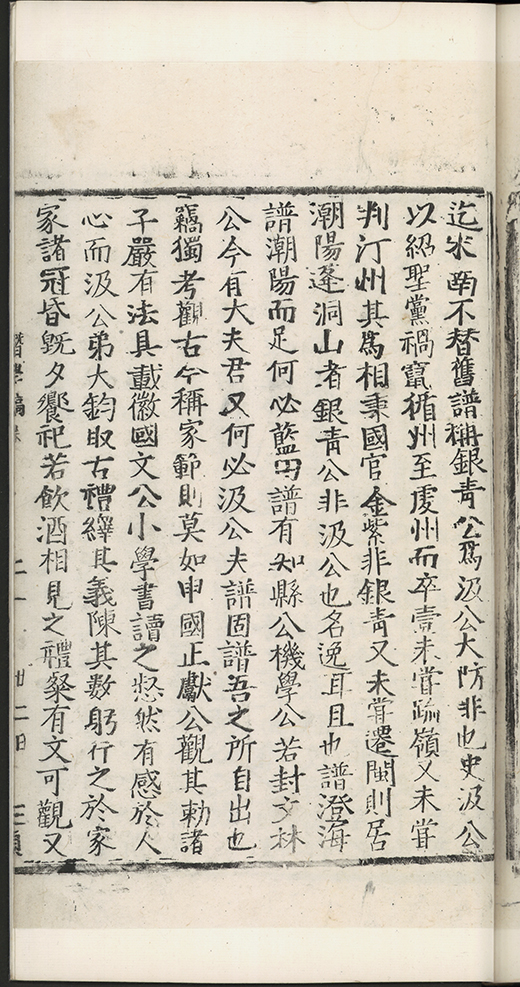 迄宋南不替舊譜稱銀青公爲汲公大防非也史汲公
以紹聖黨禍竄循州至虔州而卒壹未甞踰嶺又未甞
判汀州其爲相秉國官金紫非銀青又未甞遷閩則居
潮陽蓬洞山者銀青公非汲公也名逸耳且也譜澄海
譜潮陽而足何必藍田譜有知縣公機學公若封文林
公今有大夫君又何必汲公夫譜固譜吾之所自出也
竊獨考觀古今稱家範則莫如申國正獻公觀其勑諸
子嚴有法具載徽國文公小學書讀之愀然有感於人
心而汲公弟大鈞取古禮繹其義陳其數躬行之於家
家諸冠昏旣夕饗祀若飲酒相見之禮粲有文可觀又